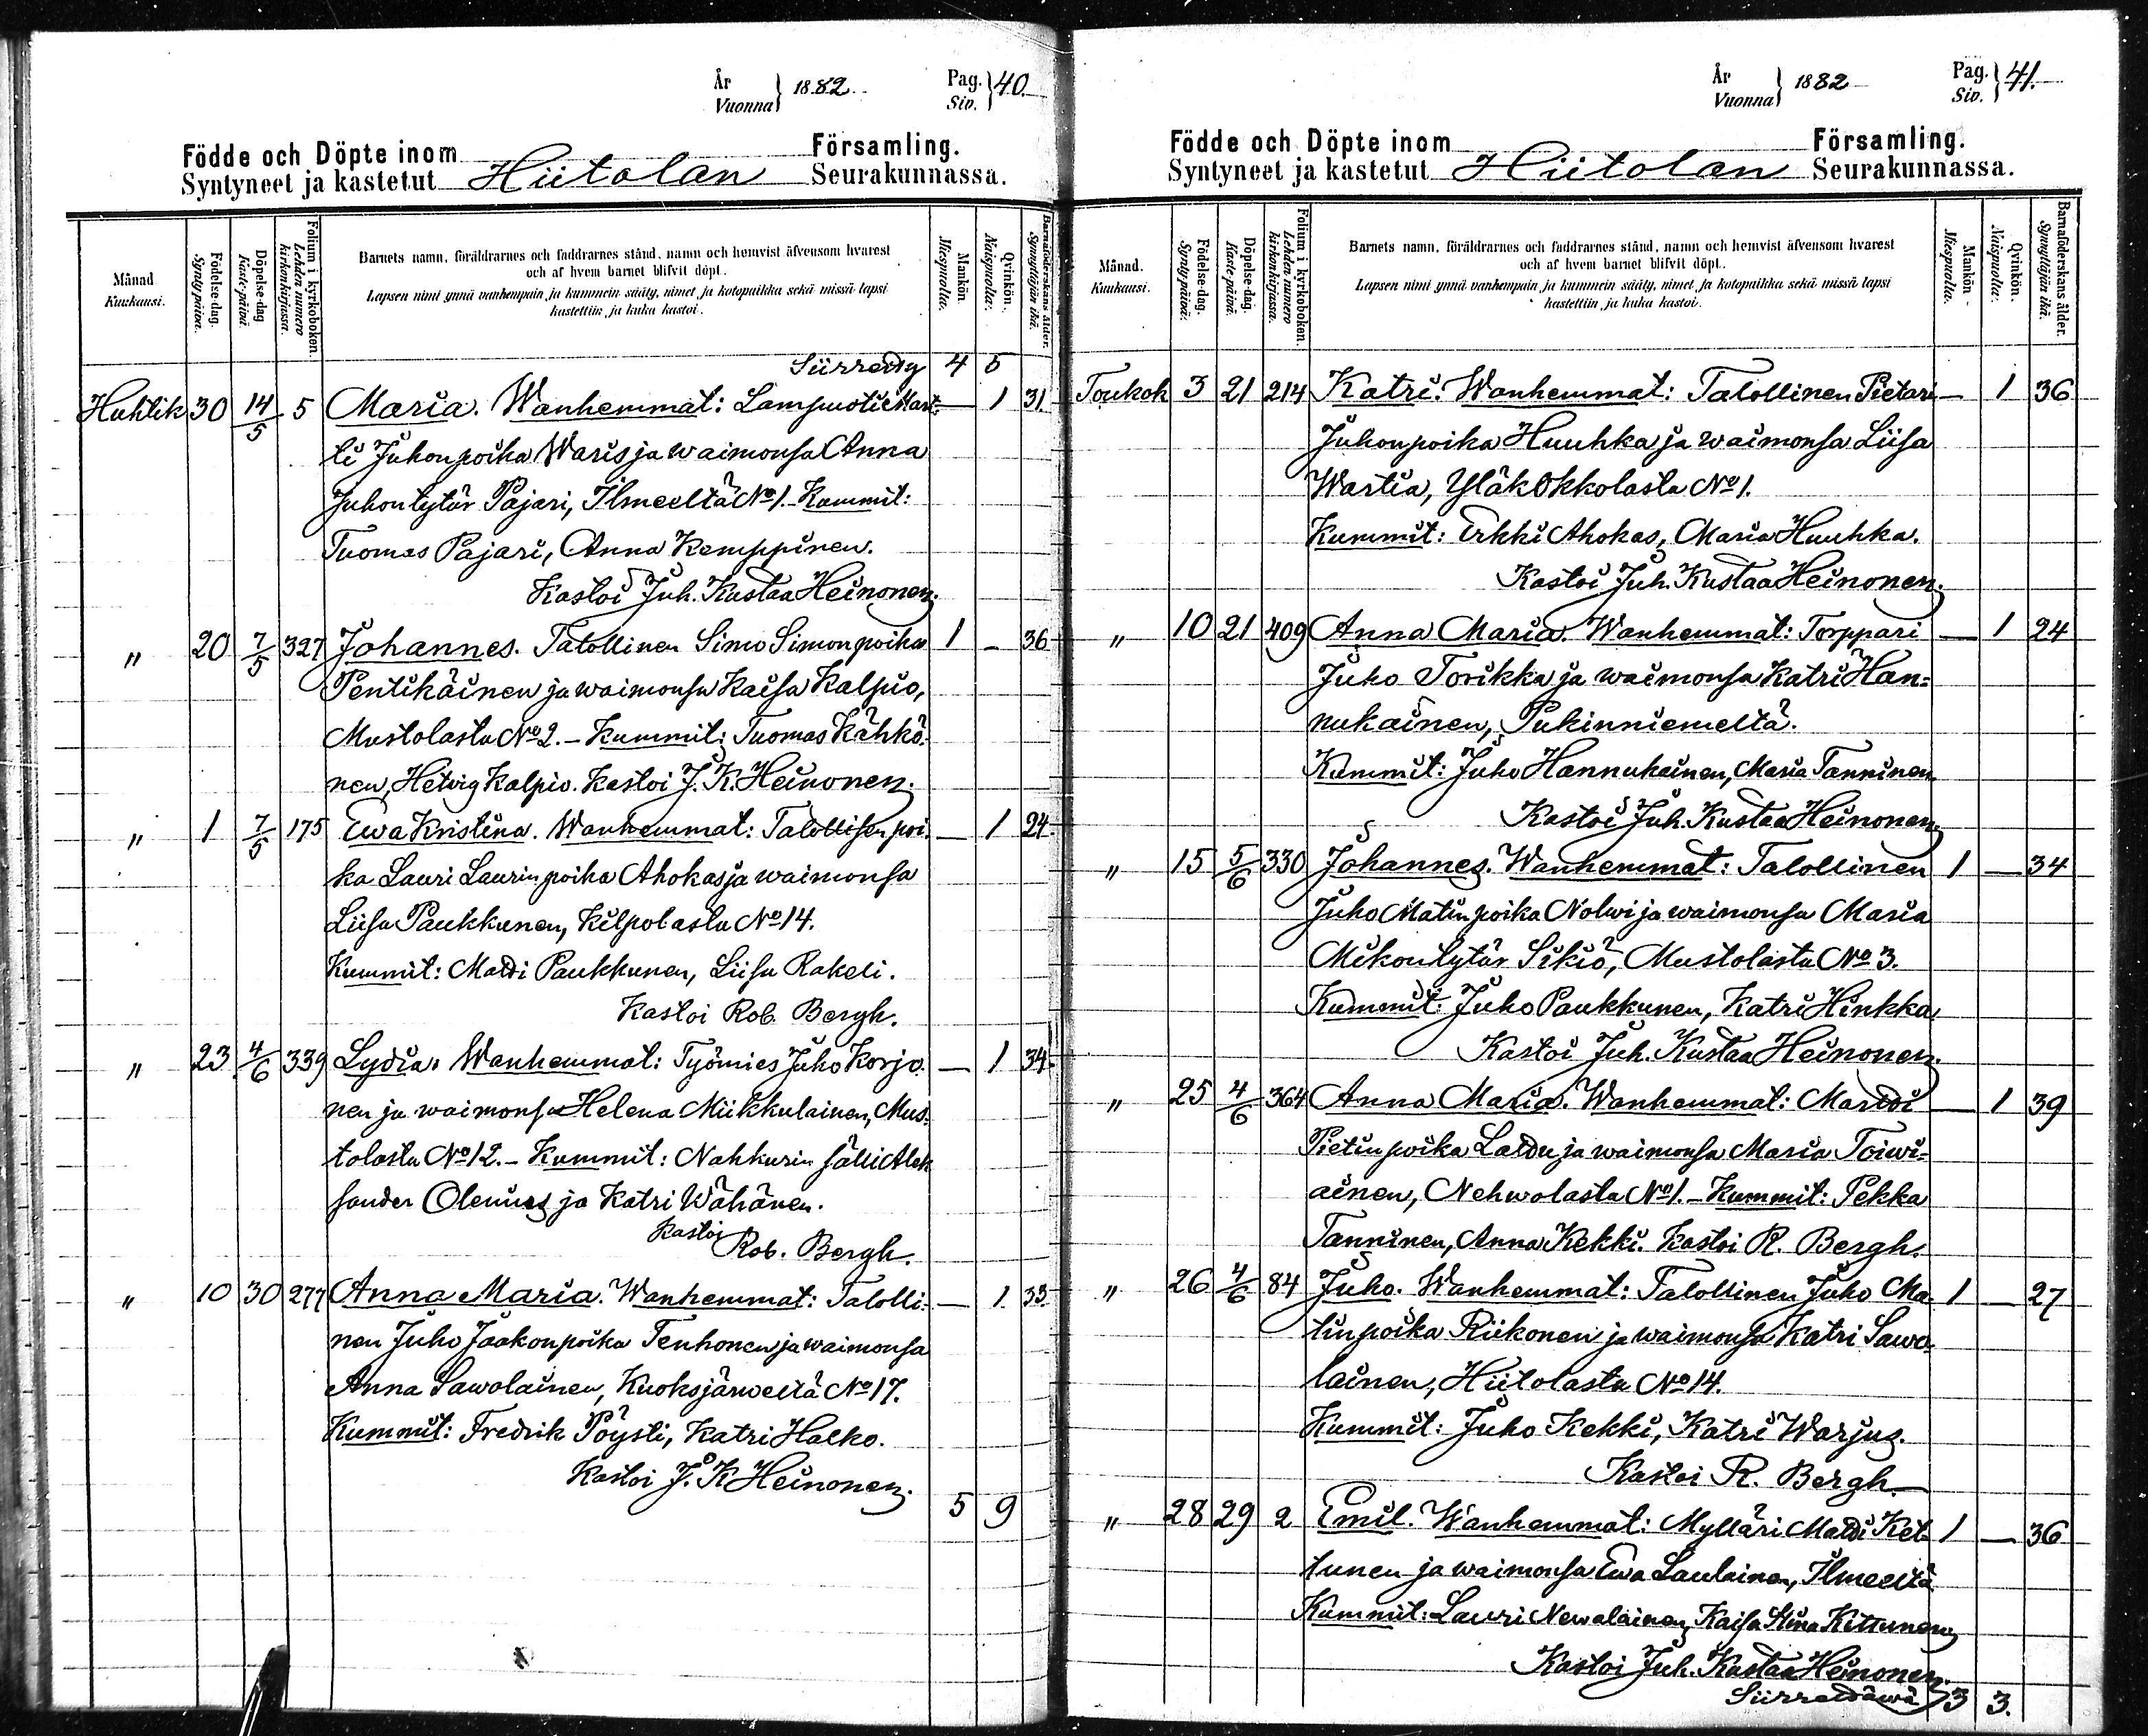 År Vuonna } 1882 Pag. Siv. } 40.
Födde och Döpte inom Församling.
Syntyneet ja kastetut Hiitolan Seurakunnassa.
Månad. Kuukausi.
Födelse-dag. Synty-päivä.
Döpelse-dag. Kaste-päivä.
Folium i kyrkoboken. Lehden numero kirkonkirjassa.
Barnets namn, föräldrarnes och faddrarnes stånd, namn och hemvist äfvensom hvarest
och af hvem barnet blifvit döpt.
Lapsen nimi ynnä vanhempain ja kummein sääty, nimet ja kotopaikka sekä missä lapsi
kastettiin ja kuka kastoi.
Mankön. Miespuolia.
Qvinkön. Naispuolia.
Barnaföderskans ålder. Synnyttäjän ikä.
Siirretty 4 5
Huhtik 30 14/5 5 Maria. Wanhemmat: Lampuoti Mart- — 1 31
ti Juhonpoika Waris ja waimonsa Anna
Juhontytär Pajari, Ilmeeltä No 1. - Kummit:
Tuomas Pajari, Anna Kemppinen.
Kastoi Juh. Kustaa Heinonen.
" 20 7/5 327 Johannes. Talollinen Simo Simonpoika 1 - 36
Pentikäinen ja waimonsa Kaisa Kalpio,
Mustolasta No 2. - Kummit: Tuomas Kähkö-
nen, Hetwig Kalpio. Kastoi J. K. Heinonen.
" 1 7/5 175 Ewa Kristina. Wanhemmat: Talollisen poi- — 1 24
ka Lauri Laurinpoika Ahokas ja waimonsa
Liisa Paukkunen, Kilpolasta No 14.
Kummit: Matti Paukkunen, Liisa Rakeli.
Kastoi Rob. Bergh.
" 23 4/6 339 Lydia. Wanhemmat: Työmies Juho Korjo- — 1 34
nen ja waimonsa Helena Miikkulainen, Mus-
tolasta No 12. - Kummit: Nahkurin sälli Alek
sander Olenius ja Katri Wähänen.
Kastoi Rob. Bergh.
" 10 30 277 Anna Maria. Wanhemmat: Talolli- — 1 33
nen Juho Jaakonpoika Tenhonen ja waimonsa
Anna Sawolainen, Kuoksjärweltä No 17.
Kummit: Fredrik Pöysti, Katri Halko.
Kastoi J. K. Heinonen.
5 9
År Vuonna } 1882 Pag. Siv. } 41.
Födde och Döpte inom Församling.
Syntyneet ja kastetut Hiitolan Seurakunnassa.
Månad. Kuukausi.
Födelse-dag. Synty-päivä.
Döpelse-dag. Kaste-päivä.
Folium i kyrkoboken. Lehden numero kirkonkirjassa.
Barnets namn, föräldrarnes och faddrarnes stånd, namn och hemvist äfvensom hvarest
och af hvem barnet blifvit döpt.
Lapsen nimi ynnä vanhempain ja kummein sääty, nimet ja kotopaikka sekä missä lapsi
kastettiin ja kuka kastoi.
Mankön. Miespuolia.
Qvinkön. Naispuolia.
Barnaföderskans ålder. Synnyttäjän ikä.
Toukok 3 21 214 Katri. Wanhemmat: Talollinen Pietari — 1 36
Juhonpoika Huuhka ja waimonsa Liisa
Wartia, Yläkokkolasta No 1.
Kummit: Erkki Ahokas, Maria Huuhka.
Kastoi Juh. Kustaa Heinonen.
" 10 21 409 Anna Maria. Wanhemmat: Torppari — 1 24
Juho Torikka ja waimonsa Katri Han-
nukainen, Pukinniemeltä.
Kummit: Juho Hannukainen, Maria Tanninen.
Kastoi Juh. Kustaa Heinonen.
" 15 5/6 330 Johannes. Wanhemmat: Talollinen 1 — 34
Juho Matinpoika Nolwi ja waimonsa Maria
Mikontytär Sikiö, Mustolasta No 3.
Kummit: Juho Paukkunen, Katri Hinkka
Kastoi Juh. Kustaa Heinonen.
" 25 4/6 364 Anna Maria. Wanhemmat: Martti — 1 39
Pietinpoika Lattu ja waimonsa Maria Toiwi-
ainen, Nehwolasta No 1. - Kummit: Pekka
Tanninen, Anna Kekki. Kastoi R. Bergh.
" 26 4/6 84 Juho. Wanhemmat: Talollinen Juho Ma- 1 — 27
tinpoika Riikonen ja waimonsa Katri Sawo-
lainen, Hiitolasta No 14.
Kummit: Juho Kekki, Katri Warjus.
Kastoi R. Bergh.
" 28 29 2 Emil. Wanhemmat: Mylläri Matti Ket- 1 — 36
tunen ja waimonsa Ewa Laulainen, Ilmeeltä
Kummit: Lauri Newalainen, Kaisa Stina Kettunen
Kastoi Juh. Kustaa Heinonen.
Siirrettäwä 3 3.